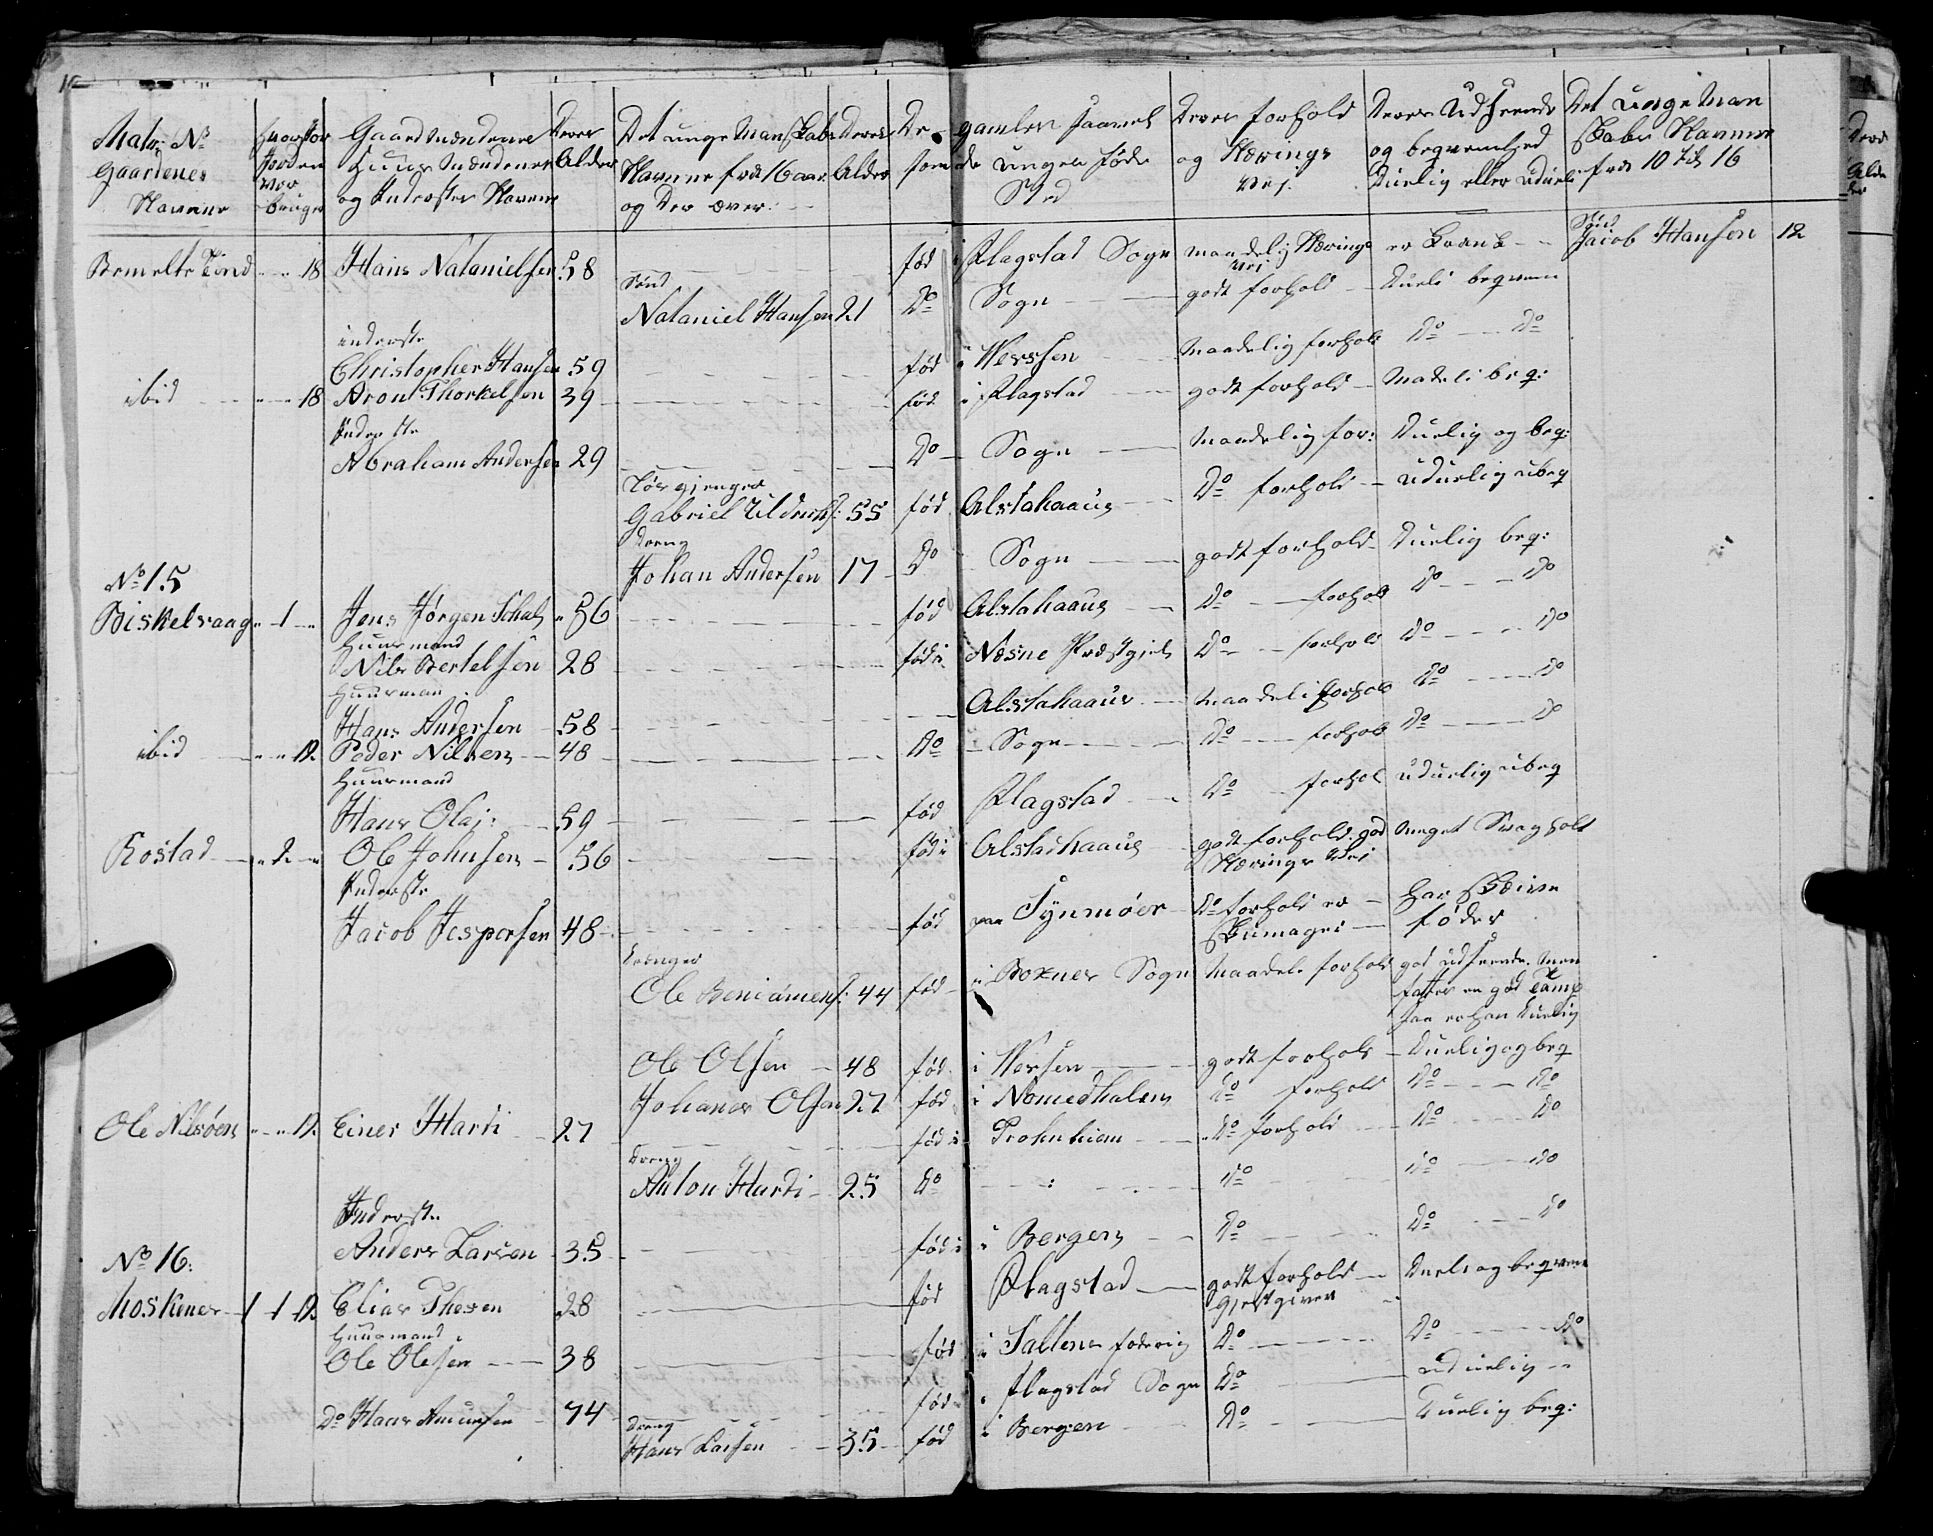 Matr: No Gaardenes Navne
Gaardmændenes Huusmændenes og Inderster Navne
Deres Alder
Det unge Mandskabs Navne fra 16 aar og der over:
Deres Alder
De gamles saavel som de unges føde Sted
Deres forhold og Nærings Vej
Deres Udseende og beqvemhed Duelig eller uduelig
Det unge Mandskabs Navne fra 10 til 16
Bemelte Tind 18 Hans Natanielsen 58 fød i Flagstad Sogn maadelig Nærings Vei er Krank
Søn Jacob Hansen 12
Sønd
Nataniel Hansen 21 Do Sogn godt forhold Dueli beqvem
inderste
Christopher Hansen 59 fød i Werssen Maadelig forhold Do Do
ibid 18 Aron Thorkelsen 39 fød i Flagstad godt forhold Madeli beq:
Inderste
Abraham Andersen 29 Do Sogn Maadelig for: Duelig og beq:
Løsgjenger
Gabriel 55 fød Alstahaaug Do forhold uduelig ubeq
Dreng
Johan Andersen 17 Do Sogn godt forhold Duelig beq:
No 15
Biskelvaag 1 Jens Jørgen Schal 56 fød Alstahaaug Do forhold Do Do
Huusmand
Nils Bertelsen 28 fød i Næsne Præstgield Do forhold Do Do
Huusman
Hans Andersen 58 Alstahaaug Maadeli forhold Do Do
ibid 12 Peder Nilsen 48 Do Sogn Do forhold Do Do
Huusmand
Hans Olai: 59 fød Flagstad Do forhol uduelig ubeq
Rostad 2 Ole Johnsen 56 fød i Alstadhaaug godt forhold. god Nærings Vei Meget Svagholt
Inderste
Jacob Jespersen 48 fød paa Synmøer Do forhold er Skumager har Skeine føder
Drenger
Ole Beniamens: 44 fød i Boxnes Sogn Maadeli forhold god udseende. Men
Ole Olsen 48 fød i Wersen godt forhold Duelig og beq
Johanes Olsen 27 fød i Nomedhalen Do forhold Do Do
Ole Nilsøen 12 Einer Hardi 27 fød i Trohnhiem Do forhold Do Do
Dreng
Anton Hardi 25 Do Do Do Do
Inderste
Anders Larsen 35 fød i Bergen Do Do Do
No 16:
Moskenes 1 1 12 Elias Thesen 28 fød Flagstad godt forhold gjestgiver Dueli og beqvem
Huusmand
Ole Olesen 38 fød i Saltens foderig Do Do Do
Do Hans Amundsen 74 fød i Flagstad Sogn Do uduelig
Dreng
Hans Larsen 35 fød i Bergen Do Duelig beq: